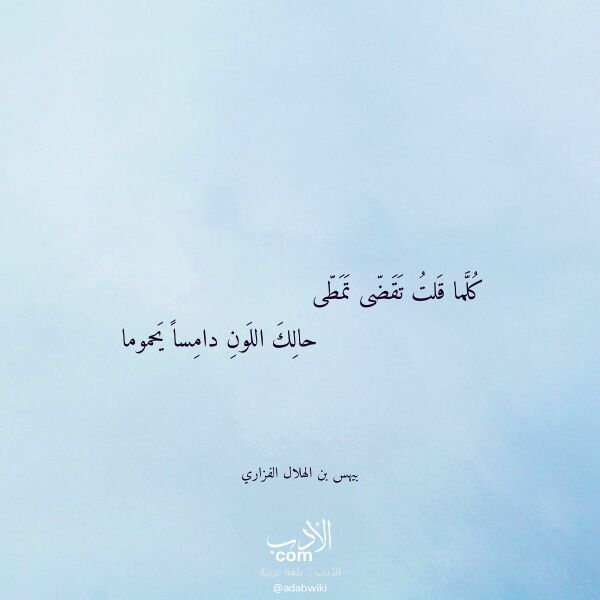 كُلَّما قَلتُ تَقَضّى تَمَطّى
حالِكَ اللَونِ دامِساً يَحموما
بيهس بن الهلال الفزاري
الأدب
com
الأدب .. بلغة عربية
@adabwiki